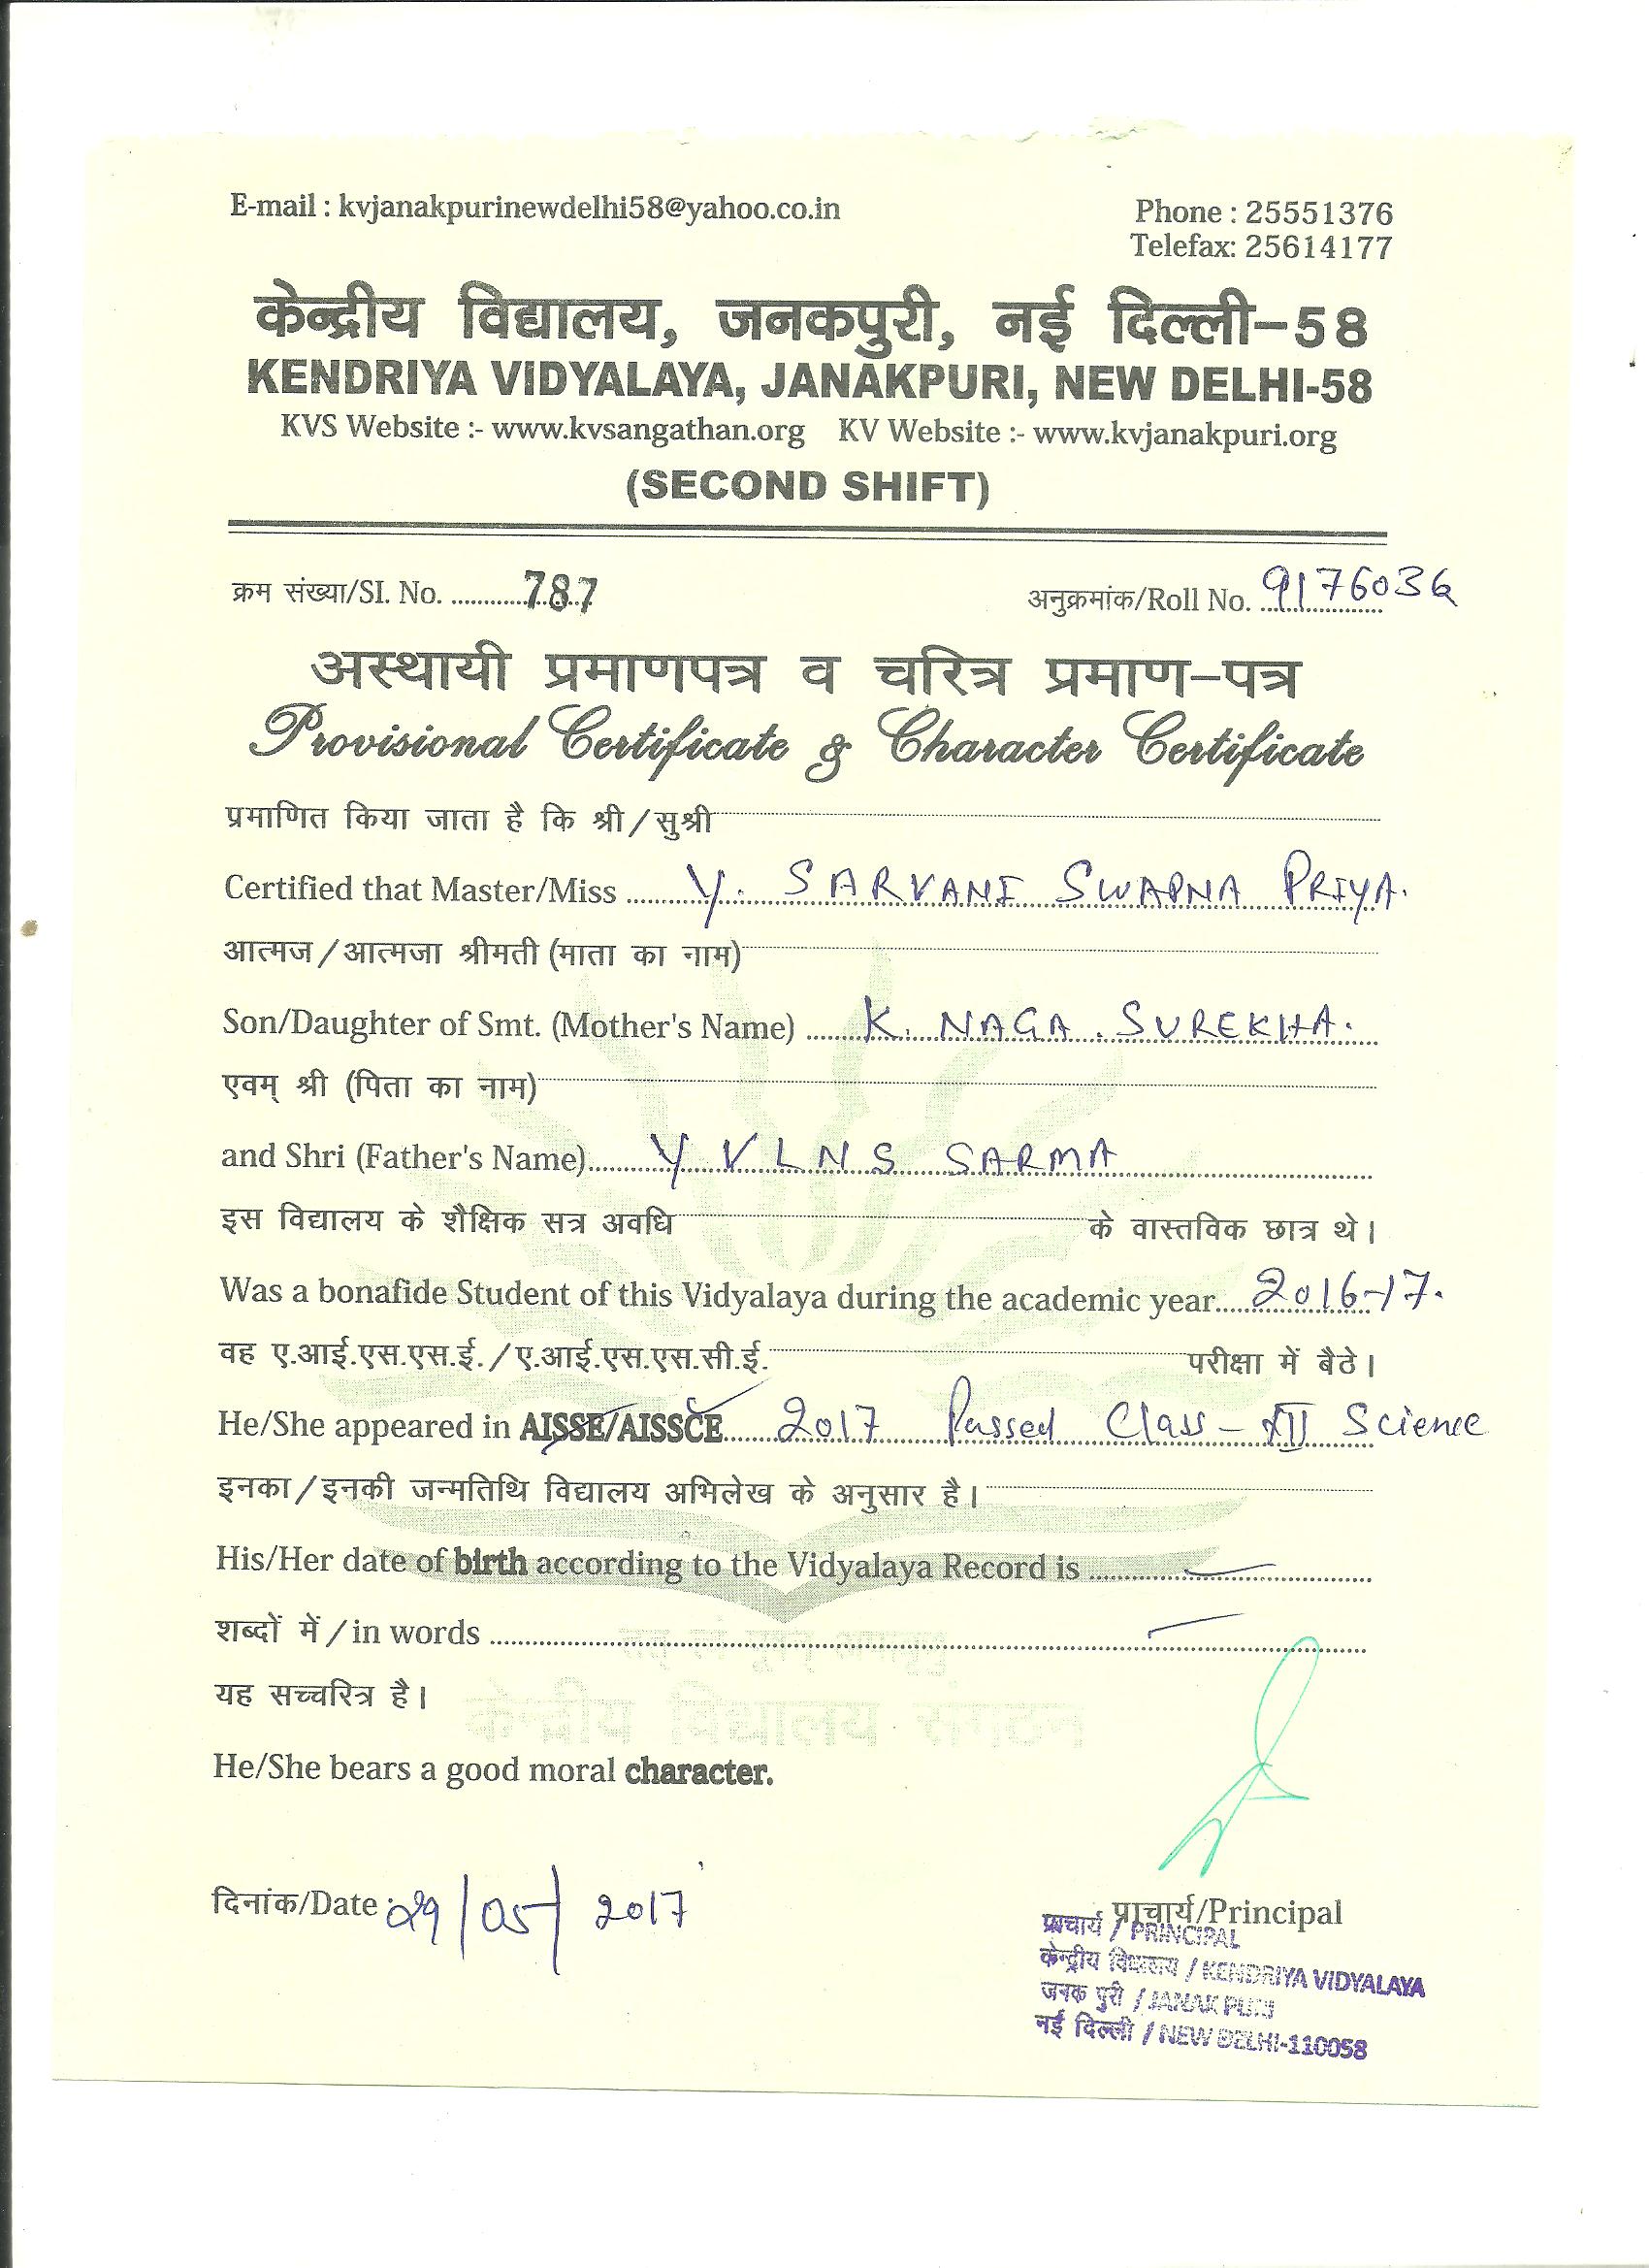 E-mail : kvjanakpurinewdelhi58@yahoo.co.in
Phone : 25551376
Telefax: 25614177
केन्द्रीय विद्यालय, जनकपुरी, नई दिल्ली-58
KENDRIYA VIDYALAYA, JANAKPURI, NEW DELHI-58
KVS Website :- www.kvsangathan.org KV Website :- www.kvjanakpuri.org
(SECOND SHIFT)
क्रम संख्या/SI. No. 787 अनुक्रमांक/Roll No. 9176036
अस्थायी प्रमाणपत्र व चरित्र प्रमाण-पत्र
Provisional Certificate & Character Certificate
प्रमाणित किया जाता है कि श्री/सुश्री
Certified that Master/Miss Y. SARVANI SWAPNA PRIYA.
आत्मज/आत्मजा श्रीमती (माता का नाम)
Son/Daughter of Smt. (Mother's Name) K. NAGA. SUREKHA.
एवम् श्री (पिता का नाम)
and Shri (Father's Name) Y V L N S SARMA
इस विद्यालय के शैक्षिक सत्र अवधि के वास्तविक छात्र थे।
Was a bonafide Student of this Vidyalaya during the academic year 2016-17.
वह ए.आई.एस.एस.ई./ए.आई.एस.एस.सी.ई. परीक्षा में बैठे।
He/She appeared in AISSE/AISSCE 2017 Passed Class - XII Science
इनका/इनकी जन्मतिथि विद्यालय अभिलेख के अनुसार है।
His/Her date of birth according to the Vidyalaya Record is —
शब्दों में/in words —
यह सच्चरित्र है।
केन्द्रीय विद्यालय संगठन
He/She bears a good moral character.
दिनांक/Date : 29/05/2017
प्राचार्य/Principal
प्राचार्य / PRINCIPAL
केन्द्रीय विद्यालय / KENDRIYA VIDYALAYA
जनक पुरी / JANAK PURI
नई दिल्ली / NEW DELHI-110058